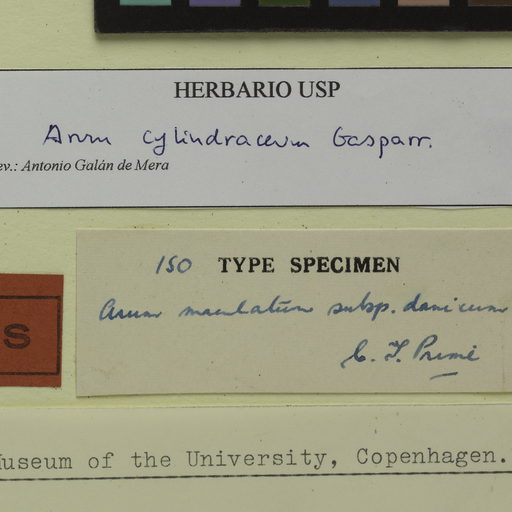 HERBARIO USP
Arum cylindraceum Gasparr.
ev.: Antonio Galán de Mera
ISO TYPE SPECIMEN
Arum maculatum subsp. danicum
C. T. Prime
S
useum of the University, Copenhagen.